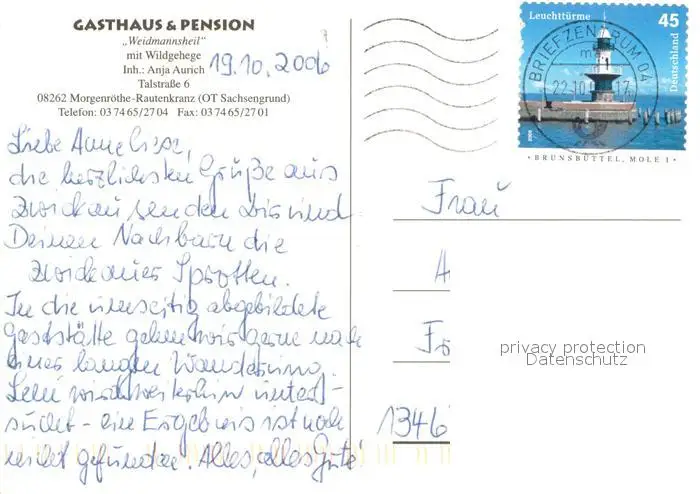 GASTHAUS & PENSION
„Weidmannsheil"
mit Wildgehege
Inh.: Anja Aurich
Talstraße 6
08262 Morgenröthe-Rautenkranz (OT Sachsengrund)
Telefon: 03 74 65/27 04 Fax: 03 74 65/27 01
19.10.2006
Liebe Anneliese,
die herzlichsten Grüße aus
Zwickau senden Dir und
Deinen Nachbarn die
Zwickauer Sprotten.
In die umseitig abgebildete
Gaststätte gehen wir gerne nach
einer langen Wanderung.
wird weiterhin unter-
sucht - ein Ergebnis ist noch
nicht gefunden. Alles, alles Gute!
Leuchttürme 45
Deutschland
BRIEFZENTRUM 04
22.10.
BRUNSBÜTTEL, MOLE 1
Frau
A
Fr
1346
privacy protection
Datenschutz